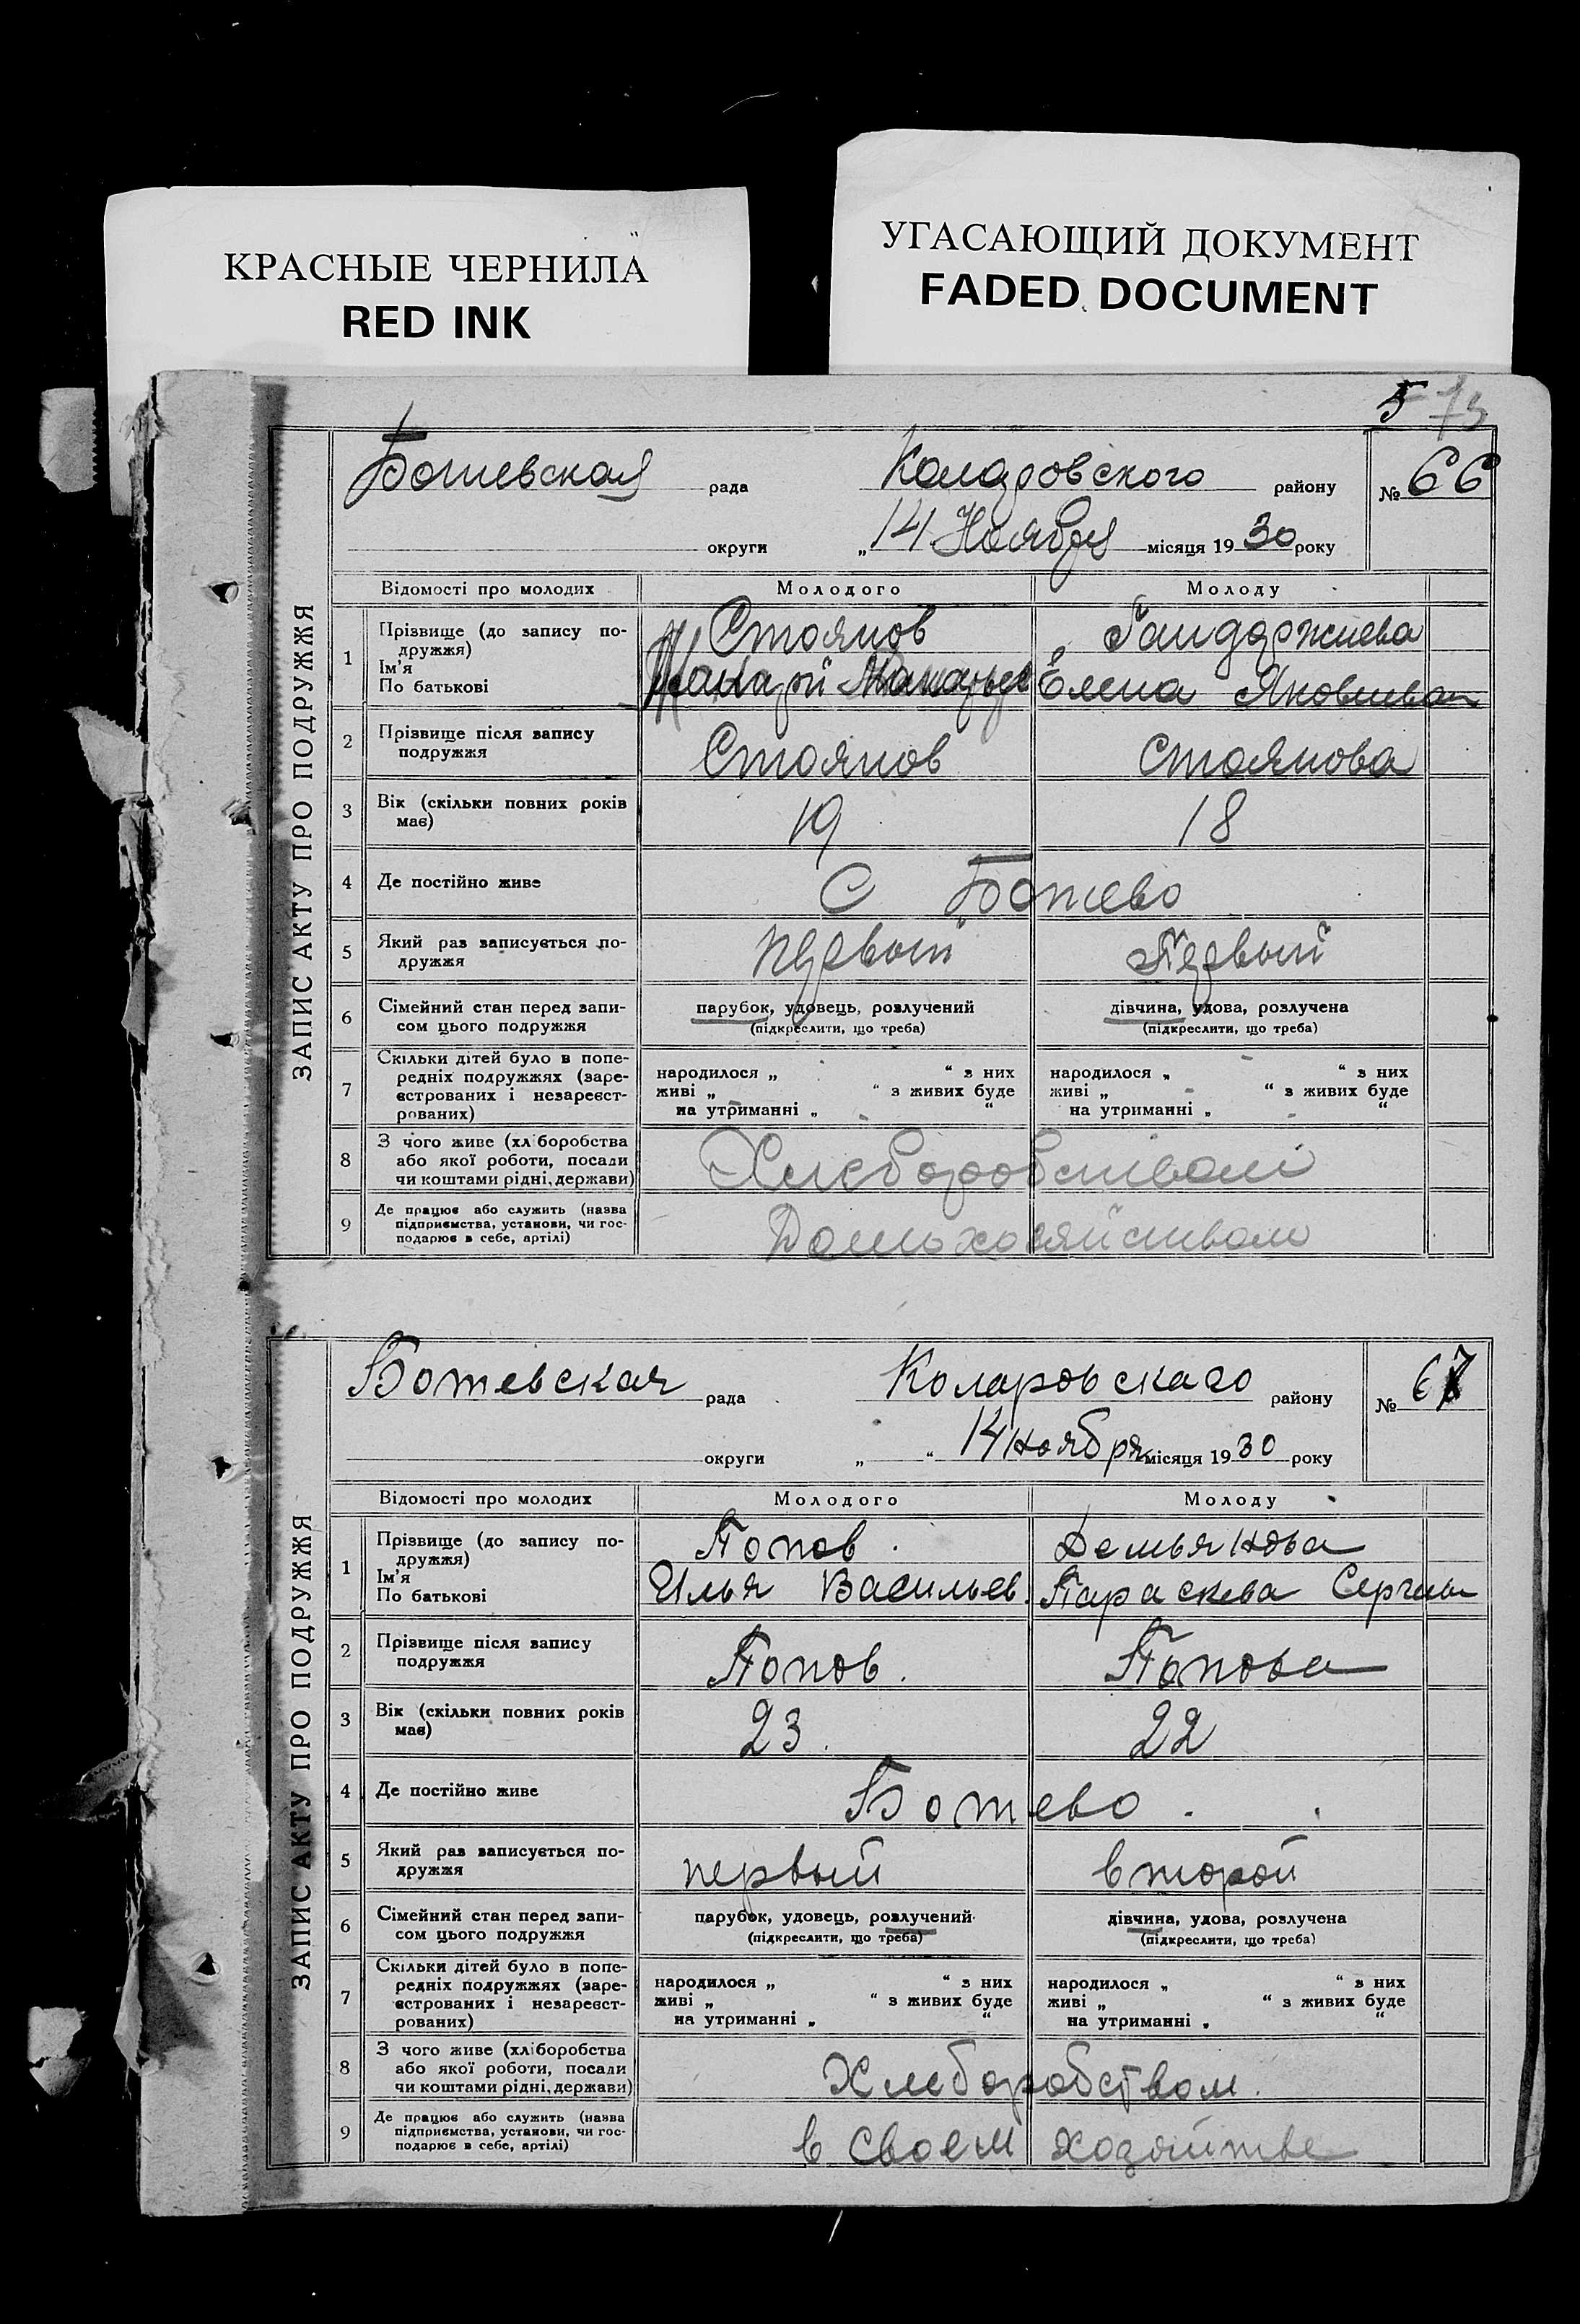 КРАСНЫЕ ЧЕРНИЛА
RED INK
УГАСАЮЩИЙ ДОКУМЕНТ
FADED DOCUMENT
5 73
ЗАПИС АКТУ ПРО ПОДРУЖЖЯ
Ботевская рада Коларовского району № 66
округи „14 Ноября місяця 1930 року
Відомості про молодих Молодого Молоду
1 Прізвище (до запису по-
дружжя)
Ім'я
По батькові
Стоянов
Макарьев
Гайдаржиева
Елена Яковлевна
2 Прізвище після запису
подружжя
Стоянов Стоянова
3 Вік (скільки повних років
має)
19 18
4 Де постійно живе С Ботево
5 Який раз записується по-
дружжя
первый Первый
6 Сімейний стан перед запи-
сом цього подружжя
парубок, удовець, розлучений
(підкреслити, що треба)
дівчина, удова, розлучена
(підкреслити, що треба)
7 Скільки дітей було в попе-
редніх подружжях (заре-
єстрованих і незареєст-
рованих)
народилося „ “ з них
живі „ “ з живих буде
на утриманні „ “
народилося „ “ з них
живі „ “ з живих буде
на утриманні „ “
8 З чого живе (хліборобства
або якої роботи, посади
чи коштами рідні, держави)
Хлеборобством
9 Де працює або служить (назва
підприємства, установи, чи гос-
подарює в себе, артілі)
Домохозяйством
ЗАПИС АКТУ ПРО ПОДРУЖЖЯ
Ботевская рада Коларовскаго району № 67
округи „ “ 14 ноября місяця 1930 року
Відомості про молодих Молодого Молоду
1 Прізвище (до запису по-
дружжя)
Ім'я
По батькові
Попов
Илья Васильев.
Демьянова
Параскева
2 Прізвище після запису
подружжя
Попов. Попова
3 Вік (скільки повних років
має)
23. 22
4 Де постійно живе Ботево.
5 Який раз записується по-
дружжя
первый второй
6 Сімейний стан перед запи-
сом цього подружжя
парубок, удовець, розлучений
(підкреслити, що треба)
дівчина, удова, розлучена
(підкреслити, що треба)
7 Скільки дітей було в попе-
редніх подружжях (заре-
єстрованих і незареєст-
рованих)
народилося „ “ з них
живі „ “ з живих буде
на утриманні „ “
народилося „ “ з них
живі „ “ з живих буде
на утриманні „ “
8 З чого живе (хліборобства
або якої роботи, посади
чи коштами рідні, держави)
Хлеборобством.
9 Де працює або служить (назва
підприємства, установи, чи гос-
подарює в себе, артілі)
в своем